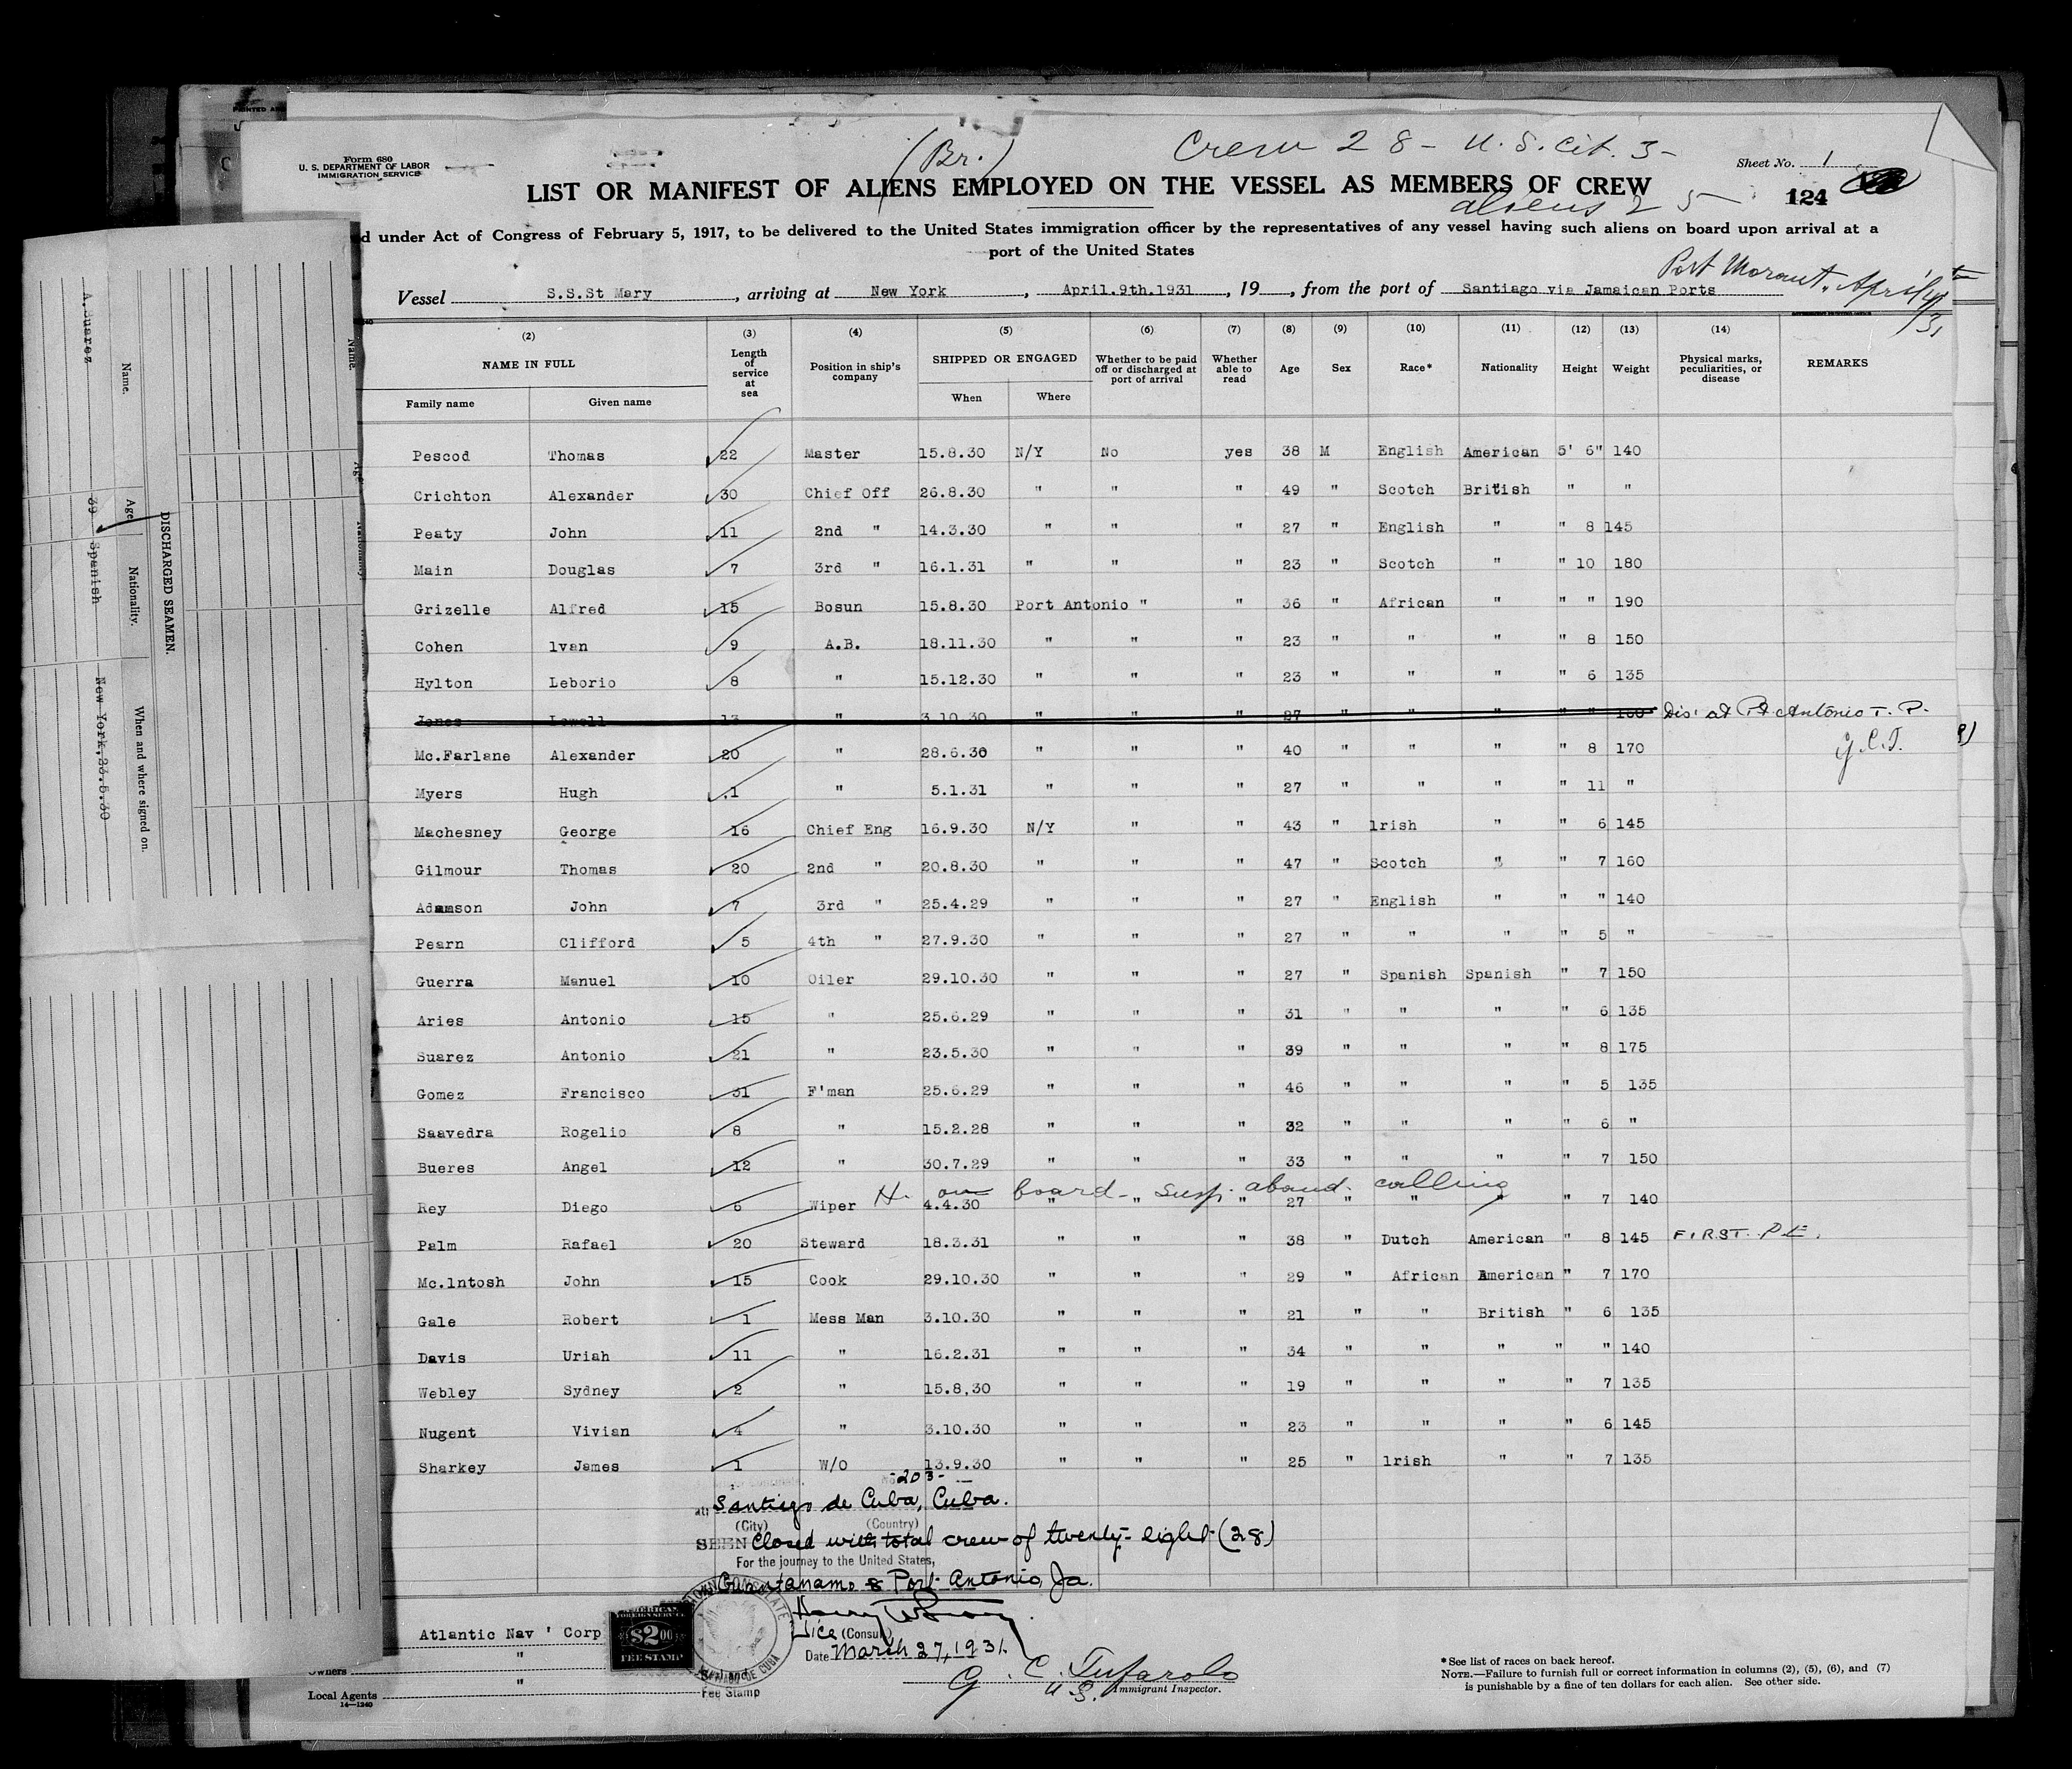 Form 680
U. S. DEPARTMENT OF LABOR
IMMIGRATION SERVICE
(Br.)
Crew 28 - U.S. Cit. 3 -
Sheet No. 1
LIST OR MANIFEST OF ALIENS EMPLOYED ON THE VESSEL AS MEMBERS OF CREW
aliens 25
124
d under Act of Congress of February 5, 1917, to be delivered to the United States immigration officer by the representatives of any vessel having such aliens on board upon arrival at a
port of the United States
Port Morant, April 4th/31
Vessel S.S.St Mary, arriving at New York, April.9th.1931, 19 , from the port of Santiago via Jamaican Ports
(2) (3) (4) (5) (6) (7) (8) (9) (10) (11) (12) (13) (14)
NAME IN FULL Length of service at sea Position in ship's company SHIPPED OR ENGAGED Whether to be paid off or discharged at port of arrival Whether able to read Age Sex Race* Nationality Height Weight Physical marks, peculiarities, or disease REMARKS
Family name Given name When Where
Pescod Thomas 22 Master 15.8.30 N/Y No yes 38 M English American 5' 6" 140
Crichton Alexander 30 Chief Off 26.8.30 " " " 49 " Scotch British " "
Peaty John 11 2nd " 14.3.30 " " " 27 " English " " 8 145
Main Douglas 7 3rd " 16.1.31 " " " 23 " Scotch " " 10 180
Grizelle Alfred 15 Bosun 15.8.30 Port Antonio " " 36 " African " " " 190
Cohen lvan 9 A.B. 18.11.30 " " " 23 " " " " 8 150
Hylton Leborio 8 " 15.12.30 " " " 23 " " " " 6 135
Jones Lowell 13 " 3.10.30 " " " 27 " " " " " 160 Dis. at Pt Antonio T. P.
G.C.T.
Mc.Farlane Alexander 20 " 28.6.30 " " " 40 " " " " 8 170
Myers Hugh .1 " 5.1.31 " " " 27 " " " " 11 "
Machesney George 16 Chief Eng 16.9.30 N/Y " " 43 " lrish " " 6 145
Gilmour Thomas 20 2nd " 20.8.30 " " " 47 " Scotch " " 7 160
Adamson John 7 3rd " 25.4.29 " " " 27 " English " " " 140
Pearn Clifford 5 4th " 27.9.30 " " " 27 " " " " 5 "
Guerra Manuel 10 Oiler 29.10.30 " " " 27 " Spanish Spanish " 7 150
Aries Antonio 15 " 25.6.29 " " " 31 " " " " 6 135
Suarez Antonio 21 " 23.5.30 " " " 39 " " " " 8 175
Gomez Francisco 31 F'man 25.6.29 " " " 46 " " " " 5 135
Saavedra Rogelio 8 " 15.2.28 " " " 32 " " " " 6 "
Bueres Angel 12 " 30.7.29 " " " 33 " " " " 7 150
H. on board - susp. aband. calling
Rey Diego 6 Wiper 4.4.30 " " " 27 " " " " 7 140
Palm Rafael 20 Steward 18.3.31 " " " 38 " Dutch American " 8 145 FIRST. P.E.
Mc.lntosh John 15 Cook 29.10.30 " " " 29 " African American " 7 170
Gale Robert 1 Mess Man 3.10.30 " " " 21 " " British " 6 135
Davis Uriah 11 " 16.2.31 " " " 34 " " " " " 140
Webley Sydney 2 " 15.8,30 " " " 19 " " " " 7 135
Nugent Vivian 4 " 3.10.30 " " " 23 " " " " 6 145
Sharkey James 1 W/O 13.9.30 " " " 25 " lrish " " 7 135
No -203-
at Santiago de Cuba, Cuba.
(City) (Country)
SEEN Closed with total crew of twenty-eight (28)
For the journey to the United States,
Guantanamo & Port Antonio, Ja.
Vice (Consul)
Date March 27, 1931.
AMERICAN
FOREIGN SERVICE
$2.00
FEE STAMP
Fee Stamp
Atlantic Nav ' Corp
"
Owners
"
Local Agents
14-1240
G. C. Tufarolo
U.S. Immigrant Inspector.
*See list of races on back hereof.
NOTE.—Failure to furnish full or correct information in columns (2), (5), (6), and (7)
is punishable by a fine of ten dollars for each alien. See other side.
DISCHARGED SEAMEN.
Name. Age Nationality. When and where signed on.
A.Suarez 39 Spanish New York,23.5.30